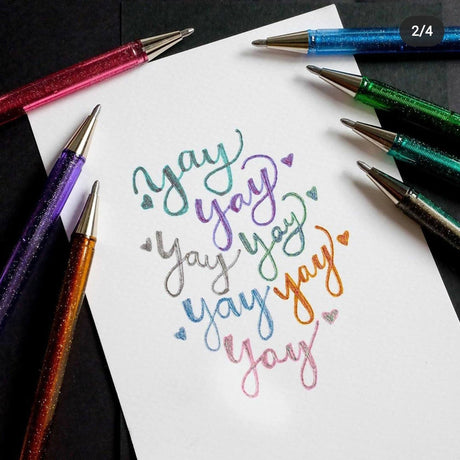 2/4
yay
yay
yay yay
yay yay
yay